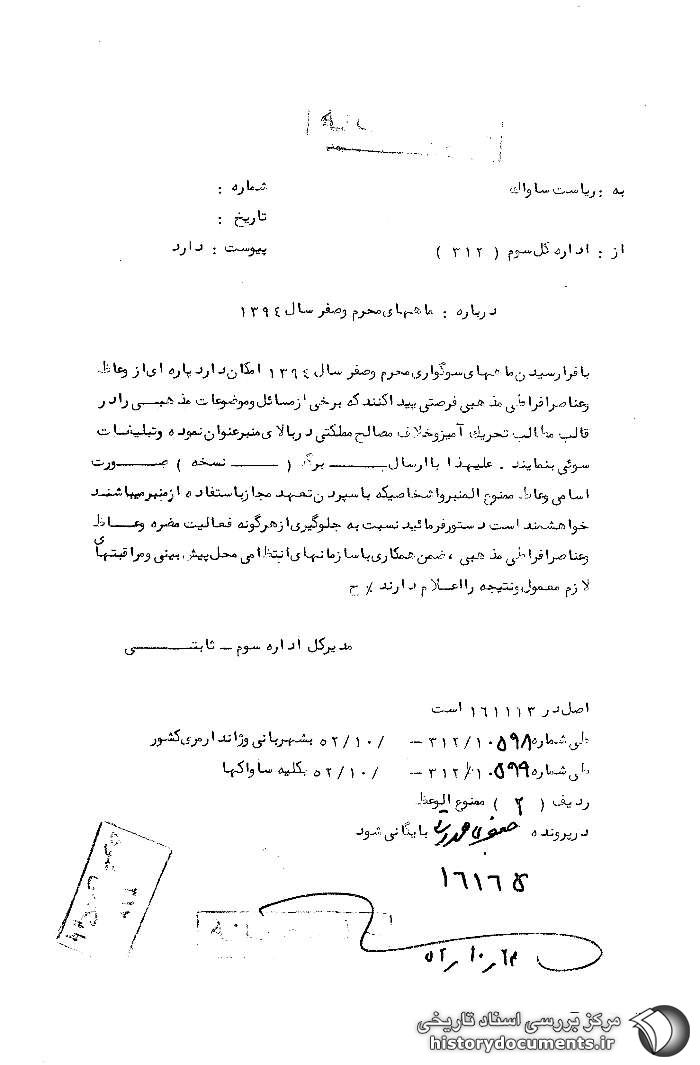 به : ریاست ساواك
شماره :
تاریخ :
از : اداره کل سوم ( ۳۱۲ )
پیوست : دارد
درباره : ماههای محرم و صفر سال ۱۳۹٤
با فرا رسیدن ماههای سوگواری محرم و صفر سال ۱۳۹٤ امکان دارد پاره ای از وعاظ
و عناصر افراطی مذهبی فرصتی پیدا کنند که برخی از مسائل و موضوعات مذهبی را در
قالب مطالب تحریك آمیز و خلاف مصالح مملکتی در بالای منبر عنوان نموده و تبلیغات
سوئی بنمایند . علیهذا با ارسال ــــ برگ ( ــــ نسخه ) صورت
اسامی وعاظ ممنوع المنبر و اشخاصیکه با سپردن تعهد مجاز باستفاده از منبر میباشند
خواهشمند است دستور فرمائید نسبت به جلوگیری از هرگونه فعالیت مضره وعاظ
و عناصر افراطی مذهبی ، ضمن همکاری با سازمانهای انتظامی محل پیش بینی و مراقبتهای
لازم معمول و نتیجه را اعلام دارند ٪ ح
مدیرکل اداره سوم ــ ثابتی
اصل در ۱٦۱۱۱۳ است
طی شماره ۳۱۲/۱۰۵۹۸ – /۵۲/۱۰ بشهربانی و ژاندارمری کشور
طی شماره ۳۱۲/۱۰۵۹۹ – /۵۲/۱۰ بکلیه ساواکها
ردیف ( ۲ ) ممنوع الوعظ
در پرونده بایگانی شود
۱٦۱٦۵
۵۲
مرکز بررسی اسناد تاریخی
historydocuments.ir